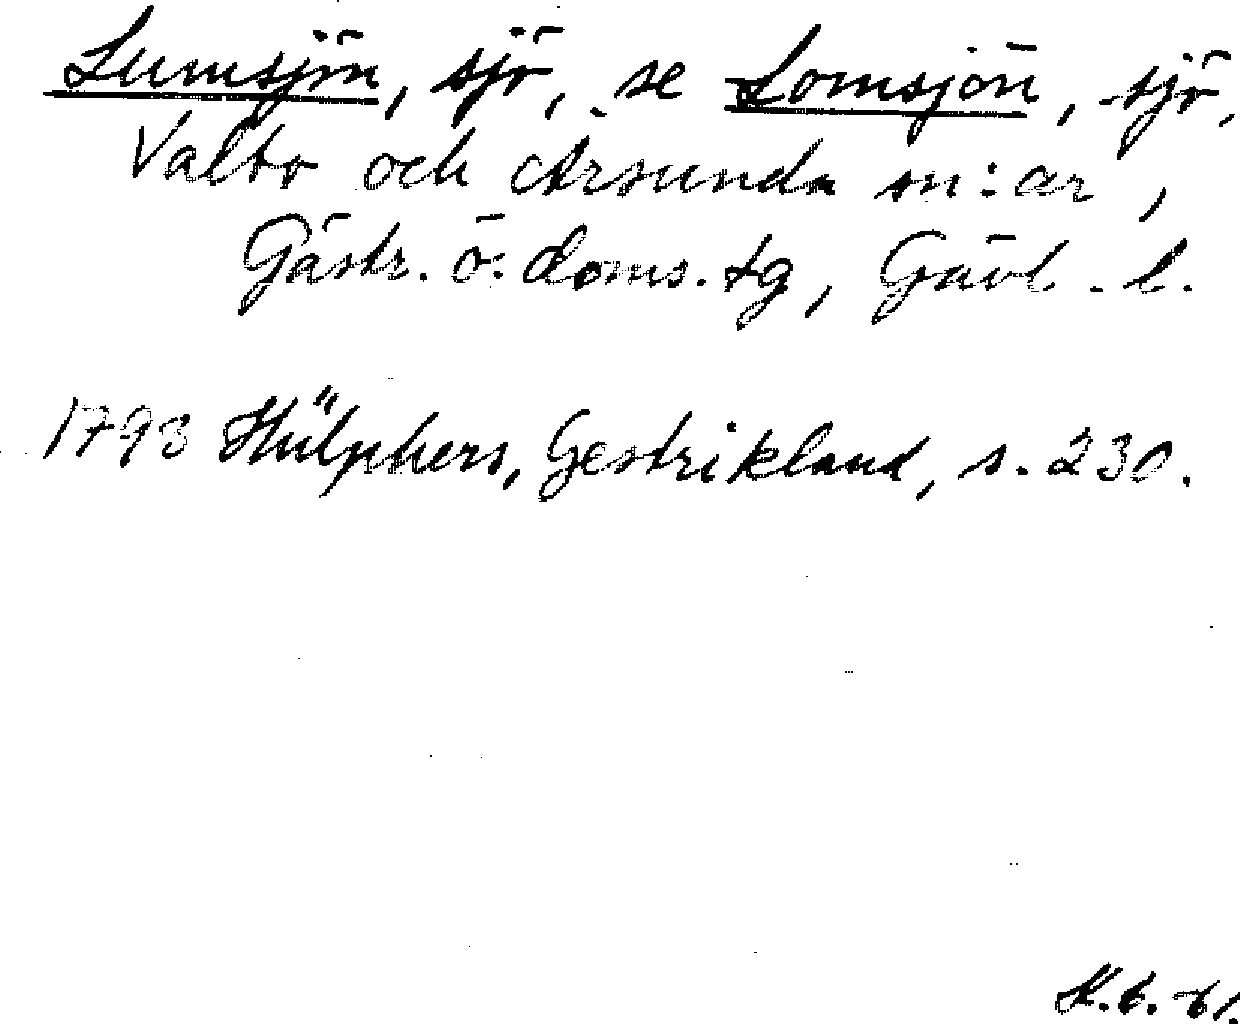 Lumsjön, sjö, se Lomsjön, sjö,
Valbo och Årsunda sn:ar,
Gästr. ö. doms.tg, Gävl. l.
1793 Hülphers, Gestrikland, s. 230.
K.b. -61.